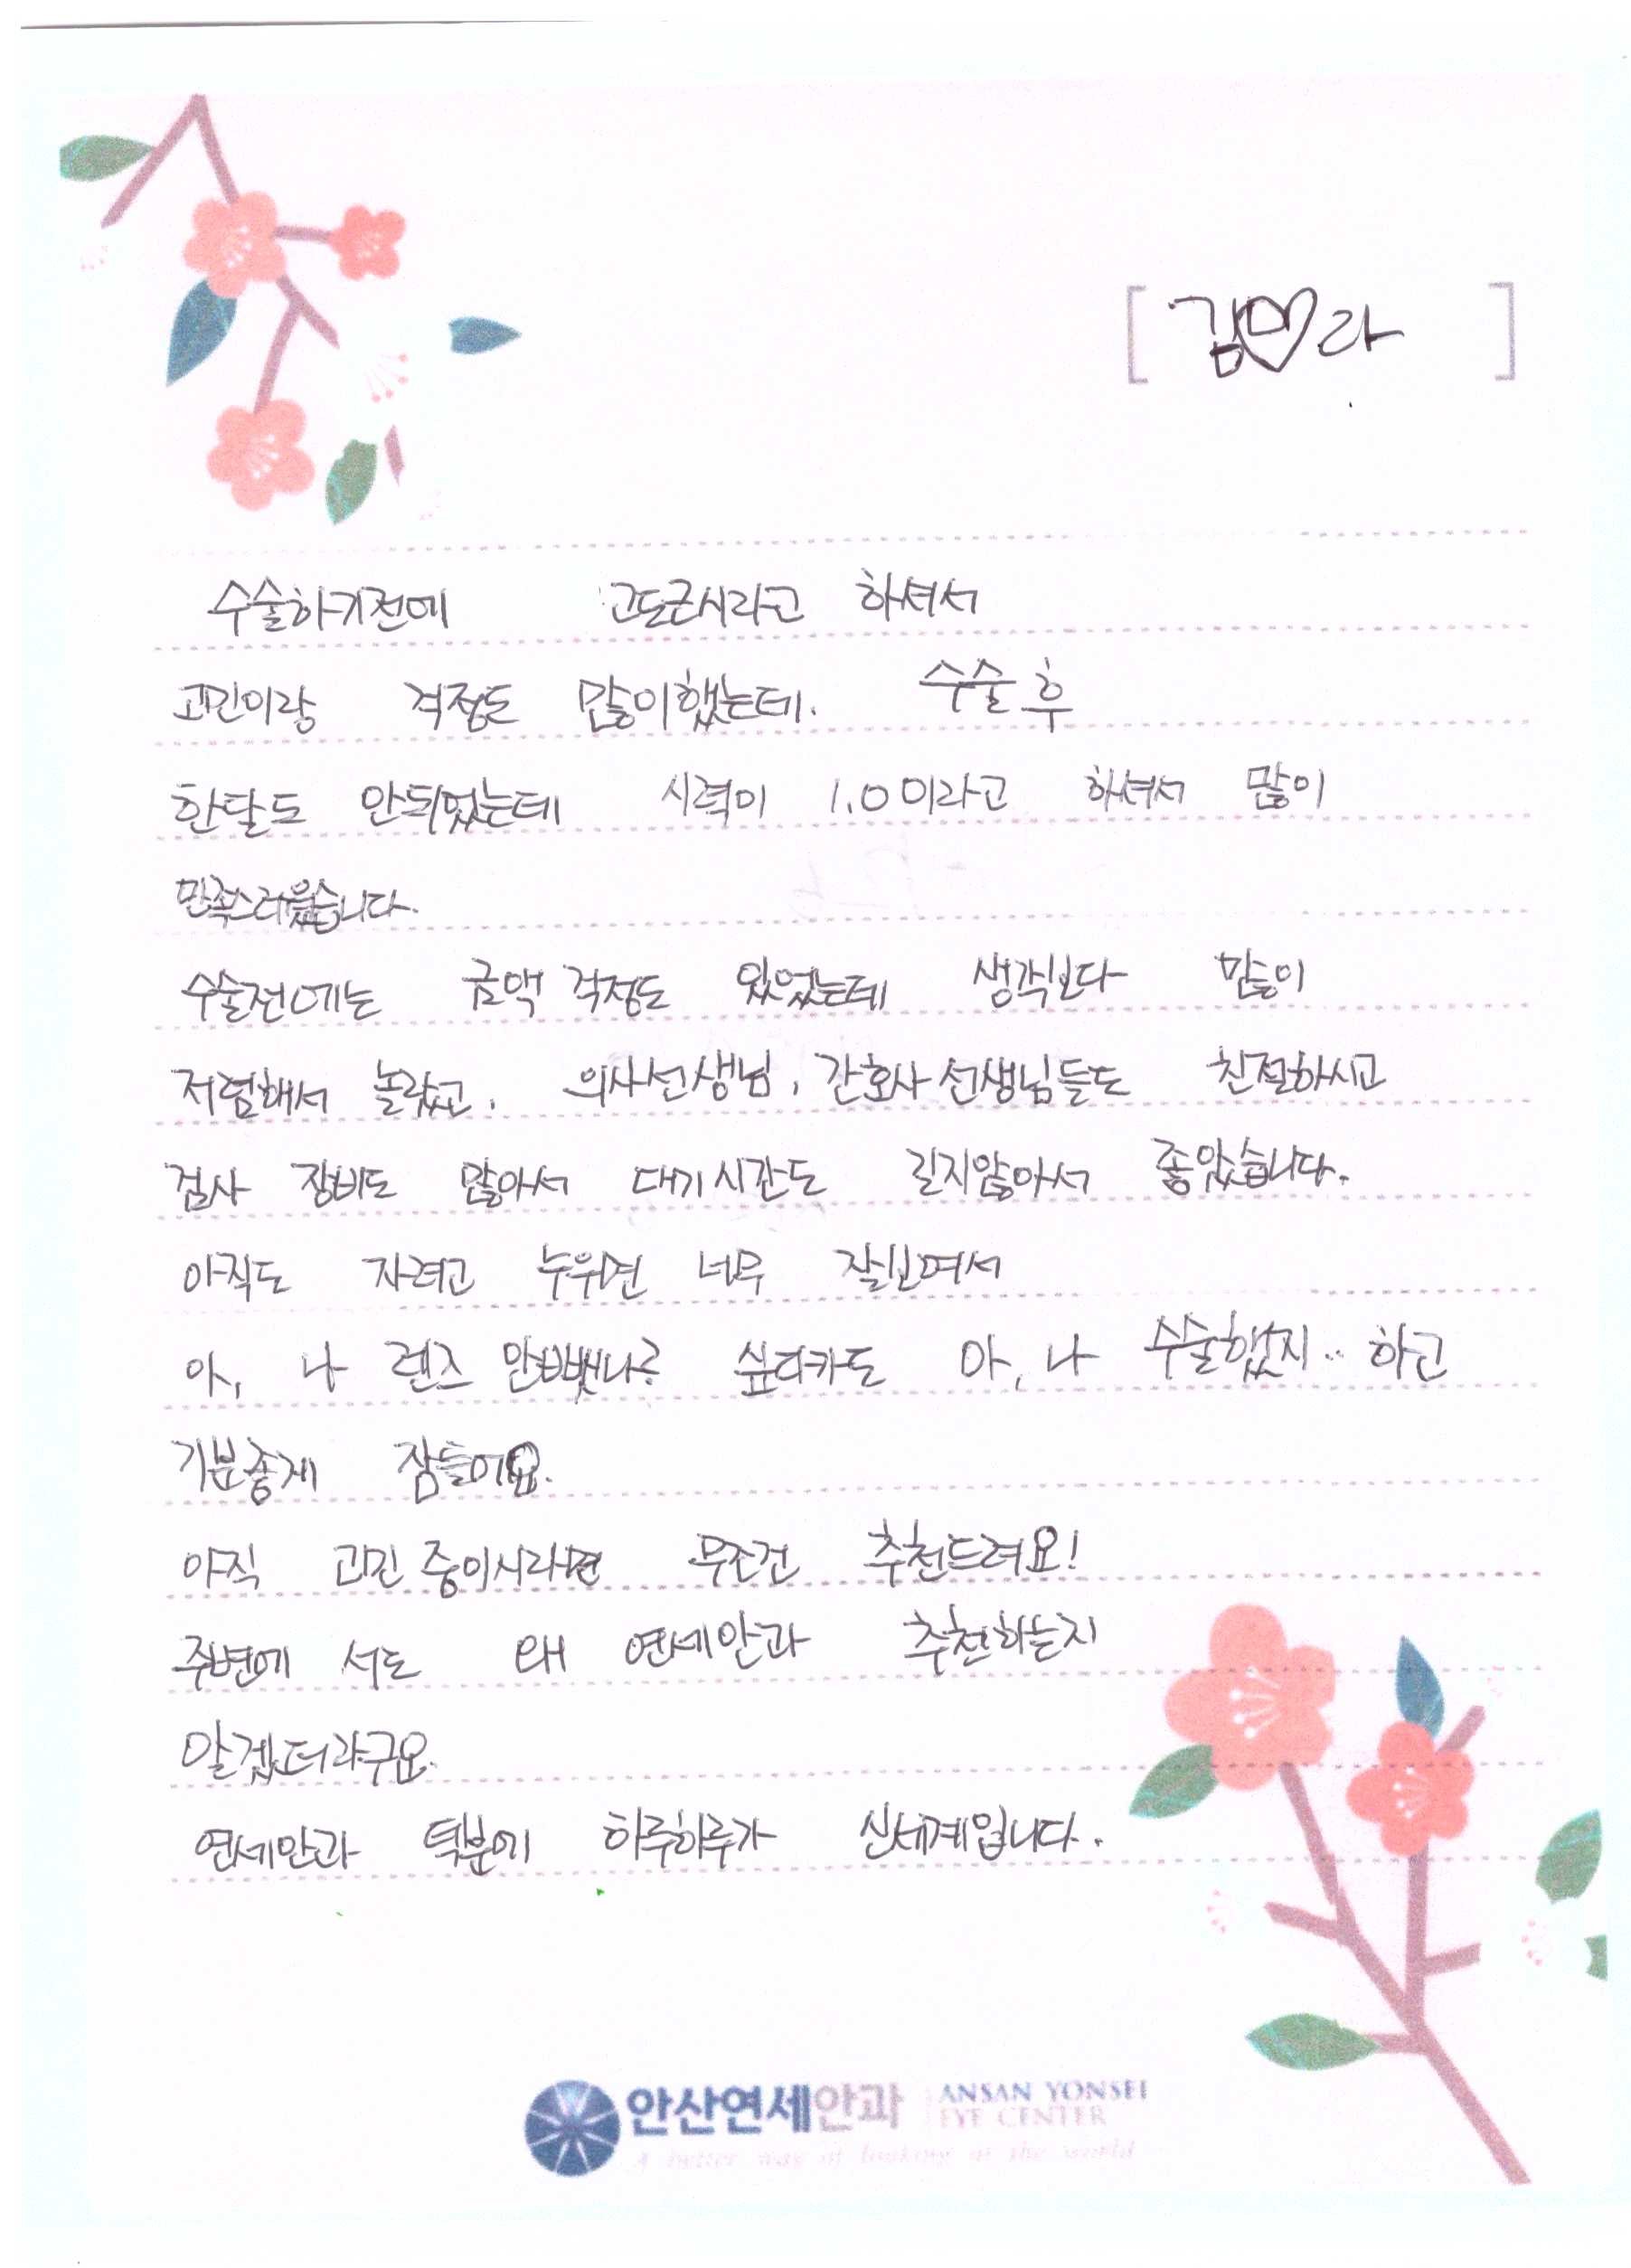 [ 김♡라 ]
수술하기전에 고도근시라고 하셔서
고민이랑 걱정도 많이했는데. 수술 후
한달도 안되었는데 시력이 1.0이라고 하셔서 많이
만족스러웠습니다.
수술전에는 금액 걱정도 있었는데 생각보다 많이
저렴해서 놀랐고, 의사선생님, 간호사 선생님들도 친절하시고
검사 장비도 많아서 대기시간도 길지않아서 좋았습니다.
아직도 자려고 누위면 너무 잘보여서
아, 나 렌즈 안뺐나? 싶다가도 아, 나 수술했지.. 하고
기분좋게 잠들어요.
아직 고민 중이시라면 무조건 추천드려요!
주변에 서도 왜 연세안과 추천하는지
알겠더라구요.
연세안과 덕분에 하루하루가 신세계입니다.
안산연세안과 ANSAN YONSEI
EYE CENTER
A better way of looking at the world